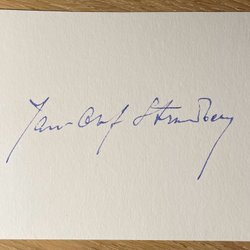 Jan-Olof Strandberg